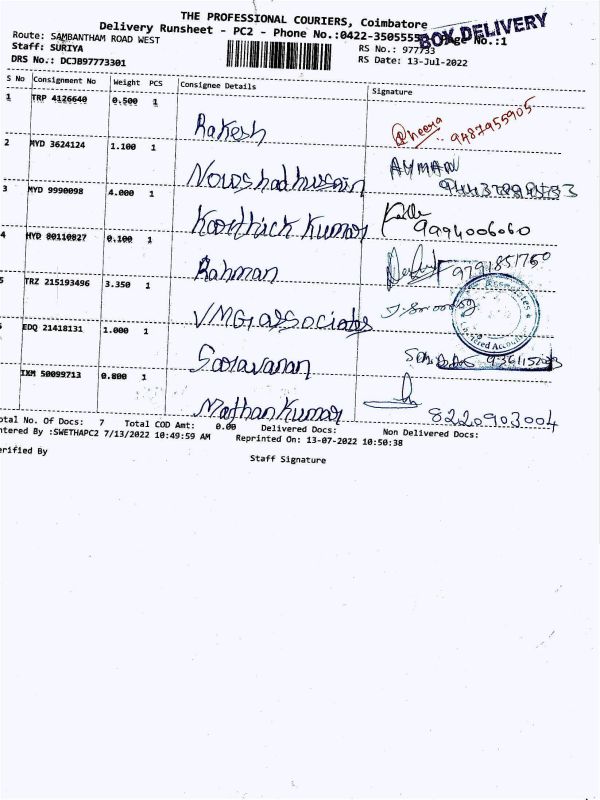 THE PROFESSIONAL COURIERS, Coimbatore
Delivery Runsheet - PC2 - Phone No.:0422-3505555
BOX DELIVERY
No.:1
Route: SAMBANTHAM ROAD WEST
RS No.: 977733
Staff: SURIYA
RS Date: 13-Jul-2022
DRS No.: DCJB97773301
S No Consignment No Weight PCS Consignee Details Signature
1 TRP 4126640 0.500 1 Rakesh 9487955905
2 MYD 3624124 1.100 1 Nowshadhussain AYMAN
3 MYD 9990098 4.000 1 Karthick Kumar 9994006060
4 MYD 80110827 0.100 1 Rahman 9791851750
5 TRZ 215193496 3.350 1 VMG associates
EDQ 21418131 1.000 1 Saravanan
IXM 50099713 0.800 1 Mathan Kumar 8220903004
otal No. Of Docs: 7 Total COD Amt: 0.00 Delivered Docs: Non Delivered Docs:
ntered By :SWETHAPC2 7/13/2022 10:49:59 AM Reprinted On: 13-07-2022 10:50:38
erified By
Staff Signature